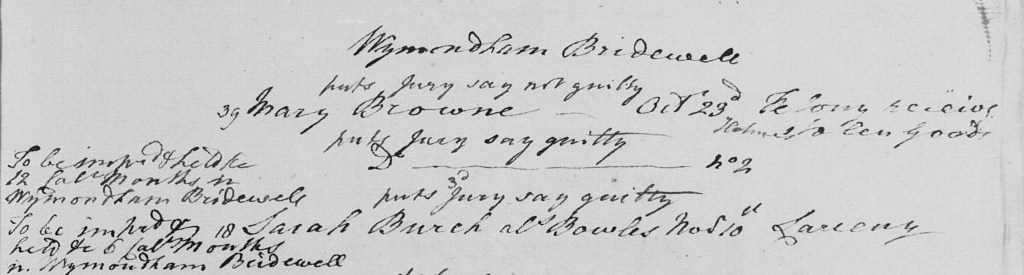 Wymondham Bridewell
puts Jury say not guilty
39 Mary Browne — Octr 23d Felony receive
Stolen Goods
puts Jury say guilty
Do — No 2
To be imprd & held to
12 Calr Months in
Wymondham Bridewell
puts Jury say guilty
To be imprd & 18 Sarah Burch als Bowles Nov 10th Larceny
held to 6 Calr Months
in Wymondham Bridewell